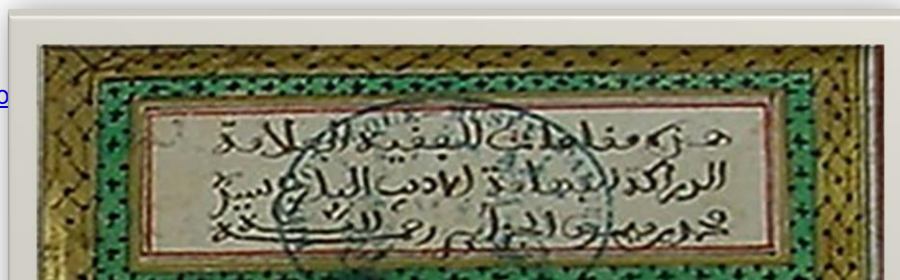 هذه مقامات الفقيه العلامة
الدراكة الفهامة الاديب البارع سيدي
محمد بن ميمون الجزائري رحمه الله